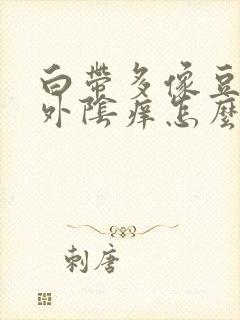 白帶多像豆
外陰痒怎麼
刺唐